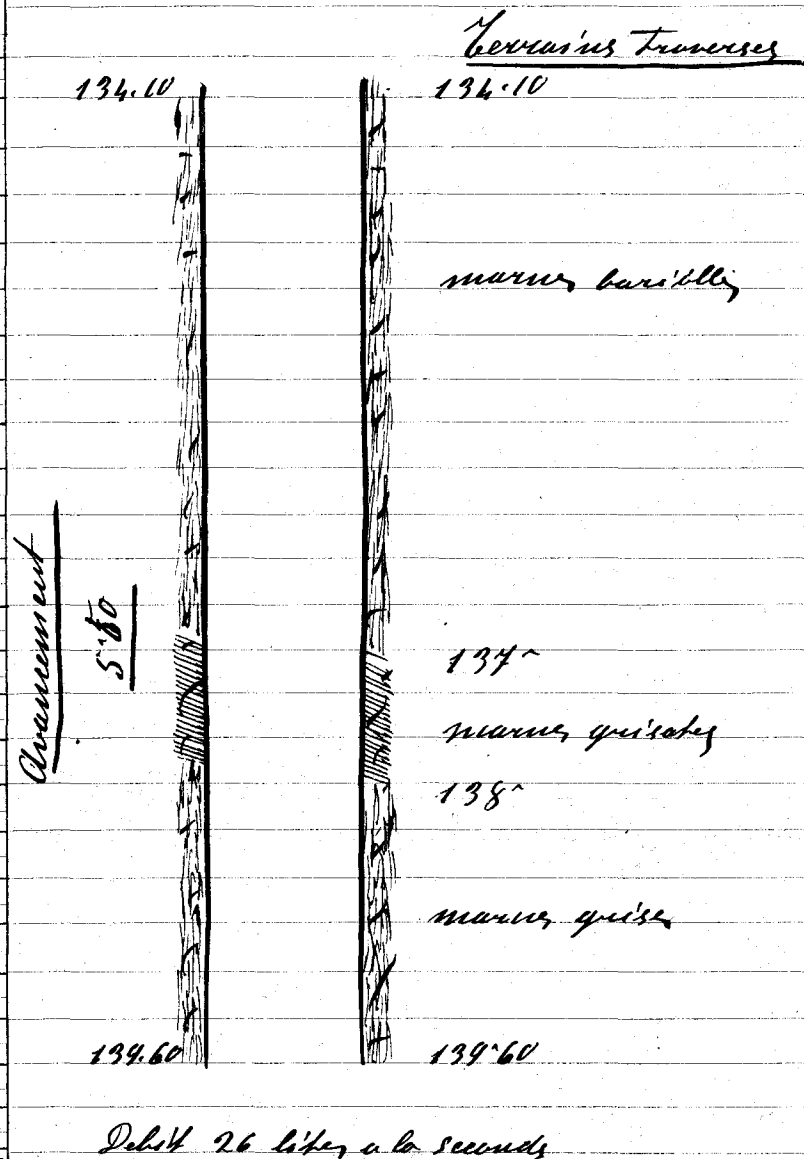 Terrains Traverses
134.10
134.10
marnes bariolles
Avancement
5m50
137m
marnes grisates
138m
marnes grises
139.60
139m60
Debit 26 litres a la seconde